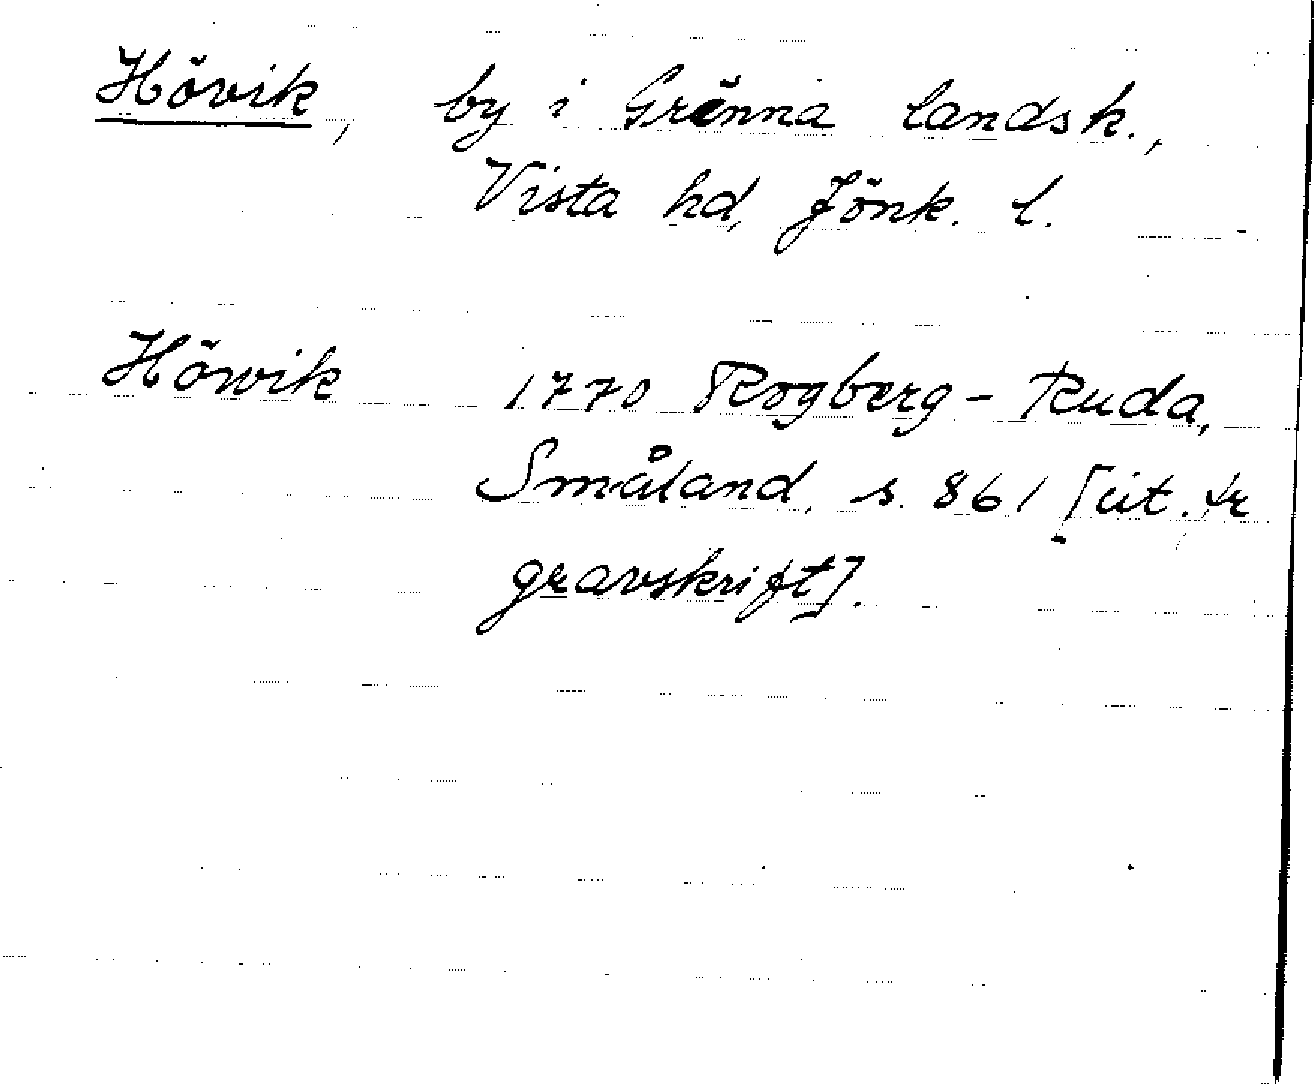 Hövik, by i Gränna landsk.,
Vista hd, Jönk. l.
Höwik 1770 Rogberg-Ruda,
Småland, s. 861 [cit. fr
gravskrift].